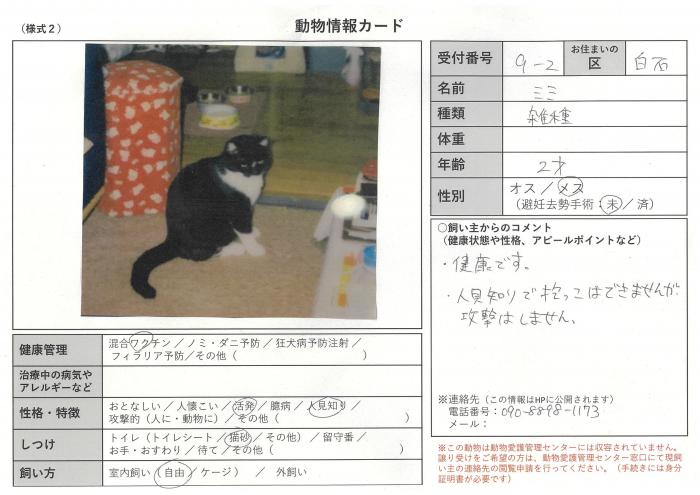 （様式２）
動物情報カード
受付番号 9-2 お住まいの区 白石
名前 ミミ
種類 雑種
体重
年齢 2才
性別 オス／メス
（避妊去勢手術：未／済）
○飼い主からのコメント
（健康状態や性格、アピールポイントなど）
・健康です。
・人見知りで抱っこはできませんが
攻撃はしません。
※連絡先（この情報はHPに公開されます）
電話番号：090-8898-1173
メール：
※この動物は動物愛護管理センターには収容されていません。
譲り受けをご希望の方は、動物愛護管理センター窓口にて現飼
い主の連絡先の閲覧申請を行ってください。（手続きには身分
証明書が必要です）
健康管理 混合ワクチン／ノミ・ダニ予防／狂犬病予防注射／
フィラリア予防／その他（ ）
治療中の病気や
アレルギーなど
性格・特徴 おとなしい／人懐こい／活発／臆病／人見知り／
攻撃的（人に・動物に）／その他（ ）
しつけ トイレ（トイレシート／猫砂／その他）／留守番／
お手・おすわり／待て／その他（ ）
飼い方 室内飼い（自由／ケージ） ／ 外飼い